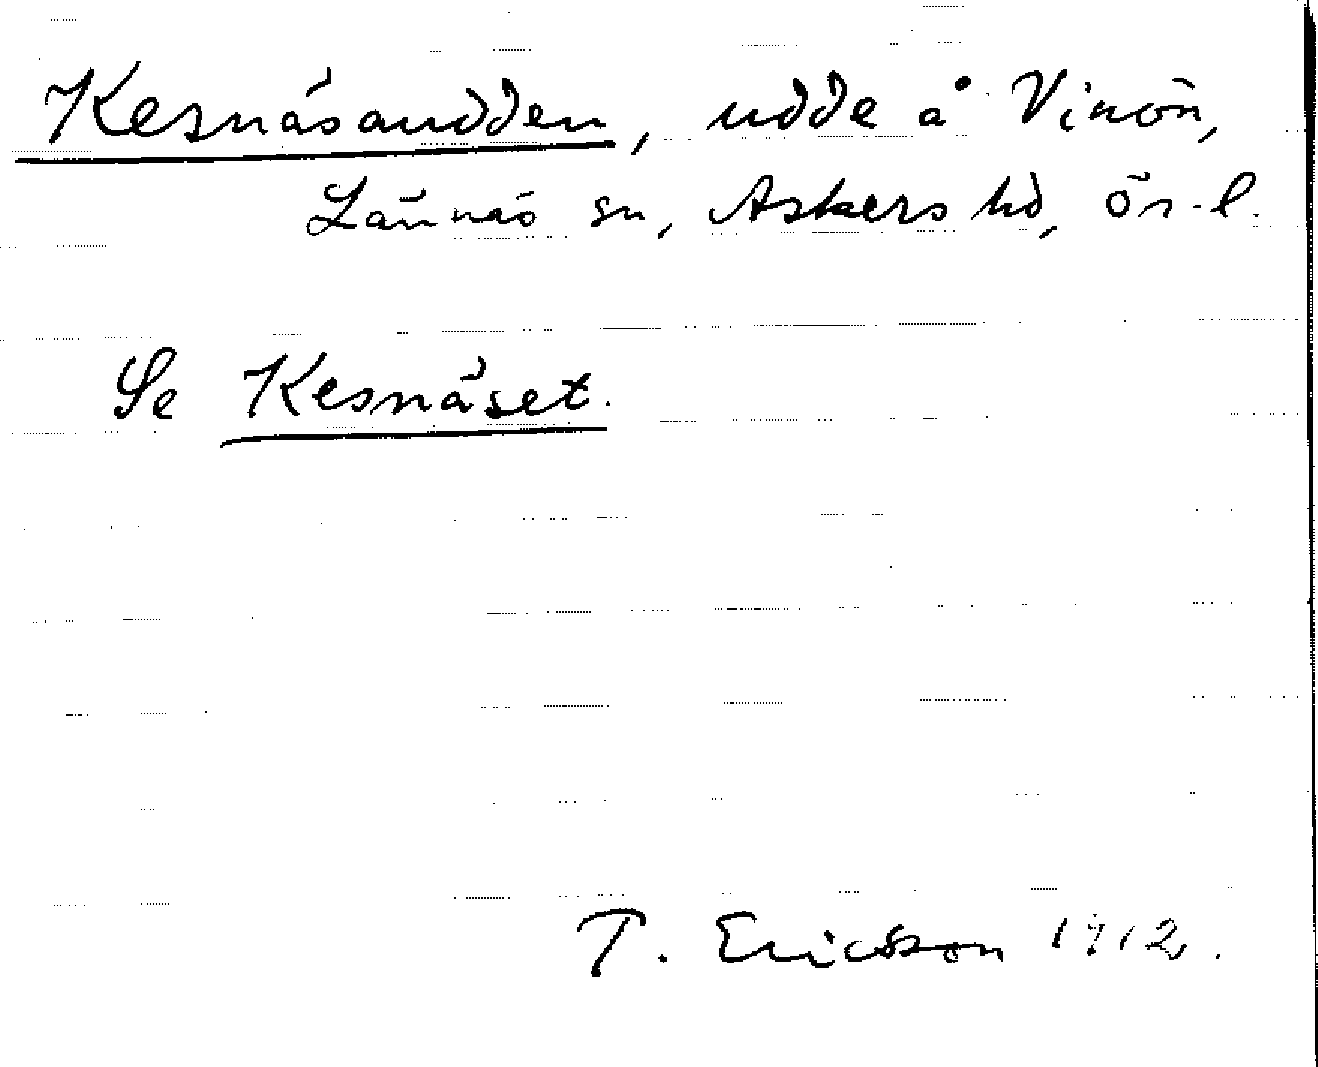 Kesnäsaudden, udde å Vinön,
Lännäs sn, Askers hd, Ör. l.
Se Kesnäset.
T. Ericsson 1912.